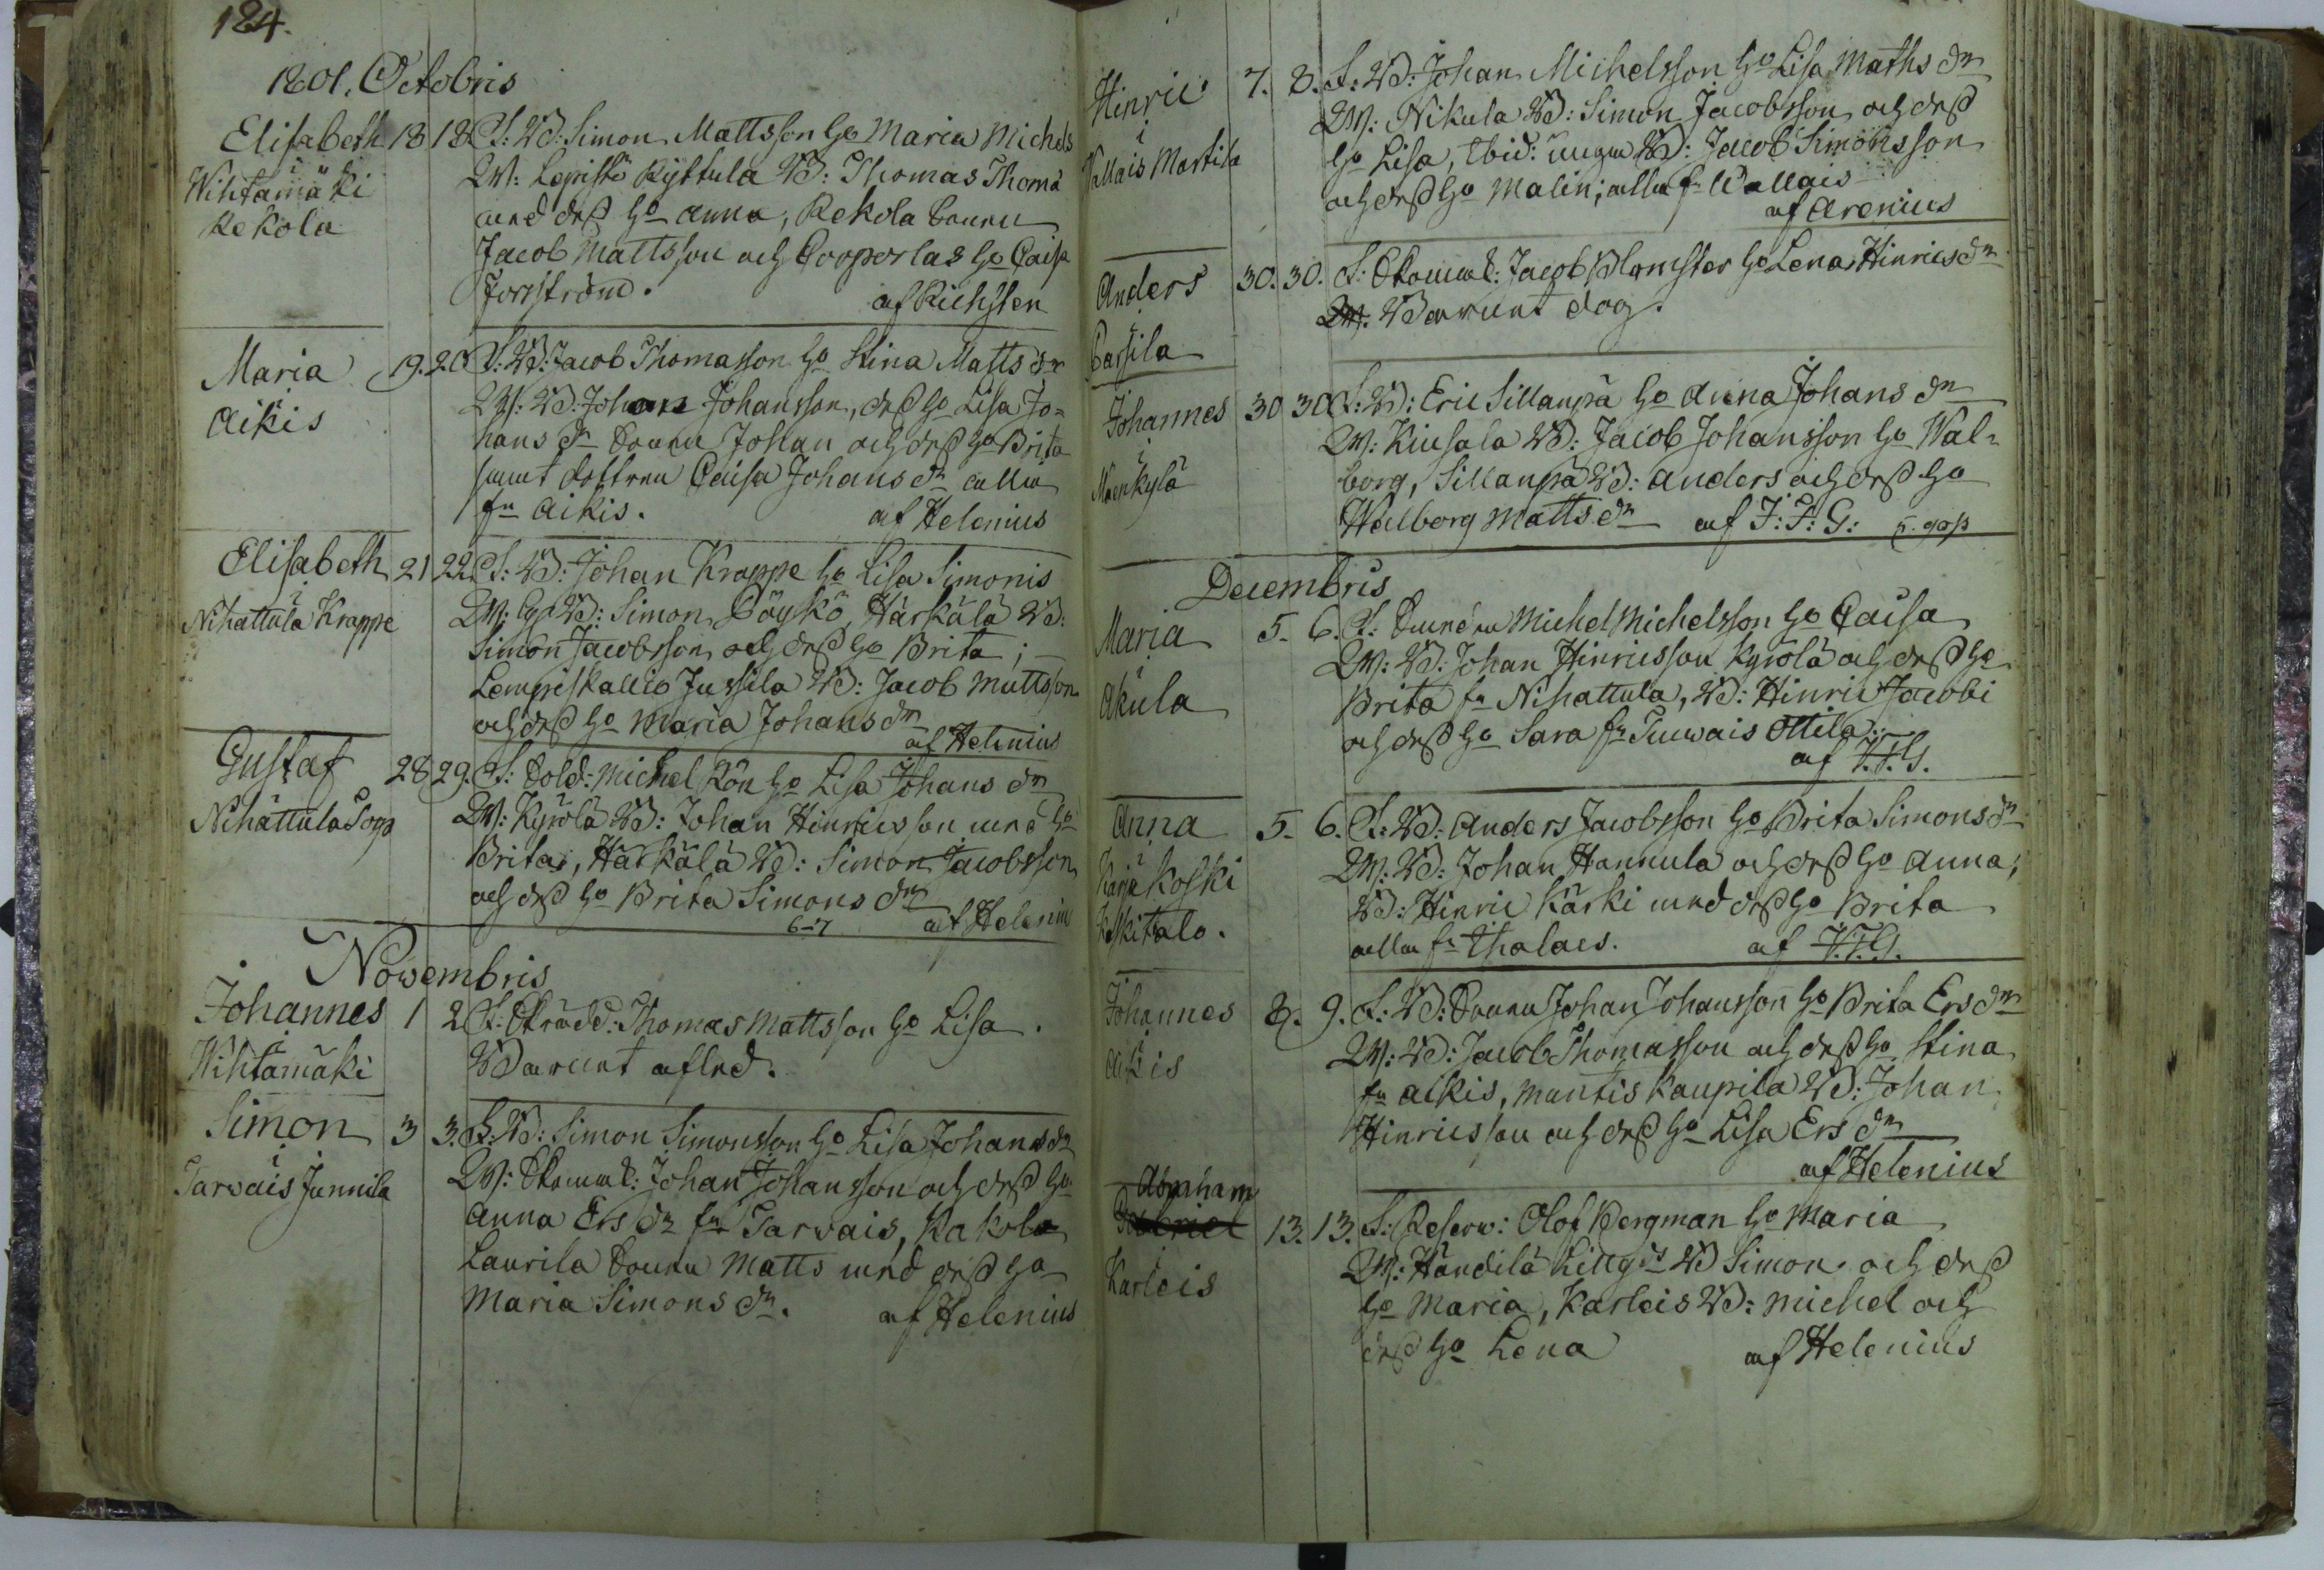 124.
1801. Octobris
Elisabeth 18 18. F: Bd: Simon Mattsson Ho Maria Michels
i Wihtamäki W: Lepistö Kyttula Bd: Thomas Thomæ
Kekola med dess Ho Anna, Kekola Sonen
Jacob Mattsson och Ho Caisa
af
Maria 19. 20 F: Bd: Jacob Thomasson Ho Stina Matts dr
i Aikis W: Bd: Johan Johansson, dess Ho Lisa Jo-
hans dr Sonen Johan och dess Ho Brita
samt dottren Caisa Johans dr alla
fr Aikis. af Helenius
Elisabeth 21 22. F: Bd: Johan Krappe Ho Lisa Simonis
i Nihattula Krappe W: Bd: Simon Härkälä Bd:
Simon Jacobsson och dess Ho Brita;
Lempiskallio Jussila Bd: Jacob Mattsson
och dess Ho Maria Johans dr
af Helenius
Gustaf 28 29. F: Sold: Michel Rön Ho Lisa Johans dr
i Nihattula W: Kyrölä Bd: Johan Hinricsson med Ho
Brita, Härkälä Bd: Simon Jacobsson
och dess Ho Brita Simons dr
6-7 af Helenius
Novembris
Johannes 1 2 F: Thomas Mattsson Ho Lisa.
i Wihtamäki Barnet afled.
Simon 3 3. F: Bd: Simon Simonsson Ho Lisa Johans dr
i Tarvais Junnila W: Johan Johansson och dess Ho
Anna Ers dr fr Tarvais, Kakola
Laurila Sonen Matts med dess Ho
Maria Simons dr. af Helenius
Hinric 7. 8. F: Bd: Johan Michelsson Ho Lisa Maths dr
i Vallais Martila W: Nikula Bd: Simon Jacobsson och dess
Ho Lisa, ibid: unga Bd: Jacob Simonsson
och dess Ho Malin; alla fr Wallais
af Arenius
Anders 30. 30. F: Jacob Blomster Ho Lena Hinrics dr
i Passila W: Barnet dog.
Johannes 30 30 F: Bd: Eric Sillanpä Ho Anna Johans dr
i W: Kiusala Bd: Jacob Johansson Ho Wal-
borg, Sillanpä Bd: Anders och dess Ho
Walborg Matts dr af J: F: G:
Decembris
Maria 5. 6. F: Michel Michelsson Ho Caisa
i Akula W: Bd: Johan Hinricsson Kyrölä och dess Ho
Brita fr Nihattula, Bd: Hinric Jacobi
och dess Ho Sara fr Ottila.
af J.F.G.
Anna 5. 6. F: Bd: Anders Jacobsson Ho Brita Simons dr
i Karja Koski W: Bd: Johan Hannula och dess Ho Anna;
Koskitalo. Bd: Hinric Kärki med dess Ho Brita
alla fr Ihalaes. af J.F.G.
Johannes 8. 9. F: Bd: Sonen Johan Johansson Ho Brita Ers dr
i Aikis W: Bd: Jacob Thomasson och dess Ho Stina
fr Aikis, Mantis Kaupila Bd: Johan
Hinricsson och dess Ho Lisa Ers dr
af Helenius
Abraham
Gabriel 13. 13. F: Reserv: Olof Bergman Ho Maria
i Karleis W: Händilä Bd Simon och dess
Ho Maria, Karleis Bd: Michel och
dess Ho Lena af Helenius